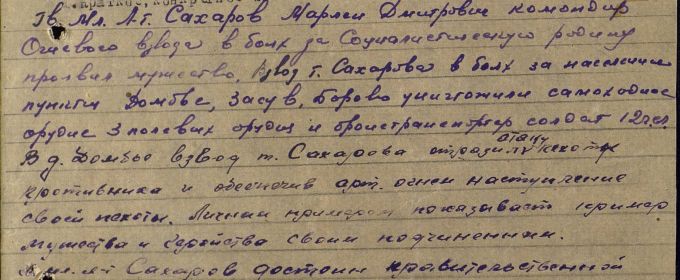 Гв. Мл. Лт. Сахаров Марлен Дмитриевич командир
Огневого взвода в боях за Социалистическую родину
проявил мужество, взвод т. Сахарова в боях за населенные
пункты Домбье, Засув, Борово уничтожили самоходное
орудие 3 полевых орудия и бронетранспортер солдат 120 сл.
В д. Домбье взвод т. Сахарова отразил атаку пехоты
противника и обеспечив арт. огнем наступление
своей пехоты. Личным примером показывает пример
мужества и геройства своим подчиненным.
мл. лт Сахаров достоин правительственной